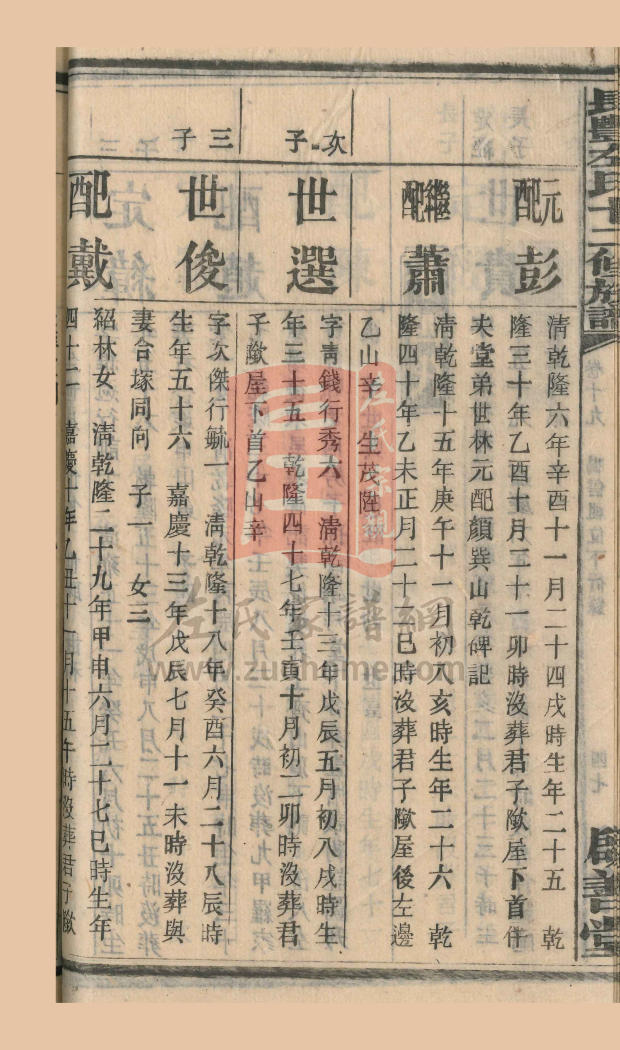 長豐左氏十二修族譜
卷十九
四七
啟善堂
元配彭
清乾隆六年辛酉十一月二十四戌時生年二十五 乾
隆三十年乙酉十月三十一卯時沒葬君子歘屋下首伴
夫堂弟世林元配顏巽山乾碑記
繼配蕭
清乾隆十五年庚午十一月初八亥時生年二十六 乾
隆四十年乙未正月二十三巳時沒葬君子歘屋後左邊
乙山辛 生茂陞
次子
世選
字青錢行秀六 清乾隆十三年戊辰五月初八戌時生
年三十五 乾隆四十七年壬寅十月初二卯時沒葬君
子歘屋下首乙山辛
三子
世俊
字次傑行毓一 清乾隆十八年癸酉六月二十八辰時
生年五十六 嘉慶十三年戊辰七月十一未時沒葬與
妻合塚同向 子一 女三
配戴
紹林女 清乾隆二十九年甲申六月二十七巳時生年
四十二 嘉慶十年乙丑十一月十五午時沒葬君子歘
左氏宗親
左氏家譜網